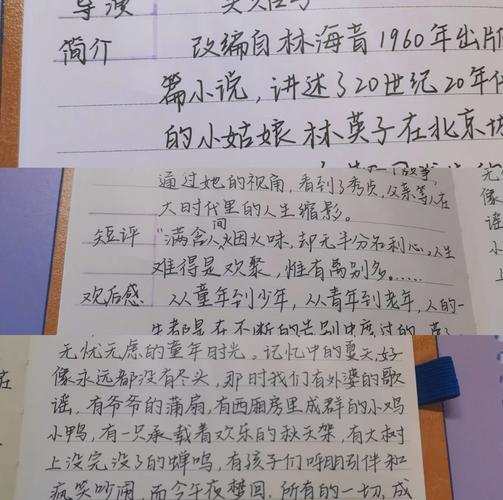 导演
简介 改编自林海音1960年出版
篇小说，讲述了20世纪20年代
的小姑娘林英子在北京城
通过她的视角，看到了秀贞，父亲等人在
大时代里的人生缩影。
短评 "满含人间烟火味，却无半分名利心。人生
难得是欢聚，惟有离别多……
观后感 从童年到少年，从青年到老年，人的一
生都是在不断的告别中度过的
无忧无虑的童年时光。记忆中的夏天好
像永远都没有尽头，那时我们有外婆的歌
谣，有爷爷的蒲扇，有西厢房里成群的小鸡
小鸭，有一只承载着欢乐的秋天架，有大树
上没完没了的蝉鸣，有孩子们呼朋引伴和
疯笑吵闹，而今午夜梦回，所有的一切，成